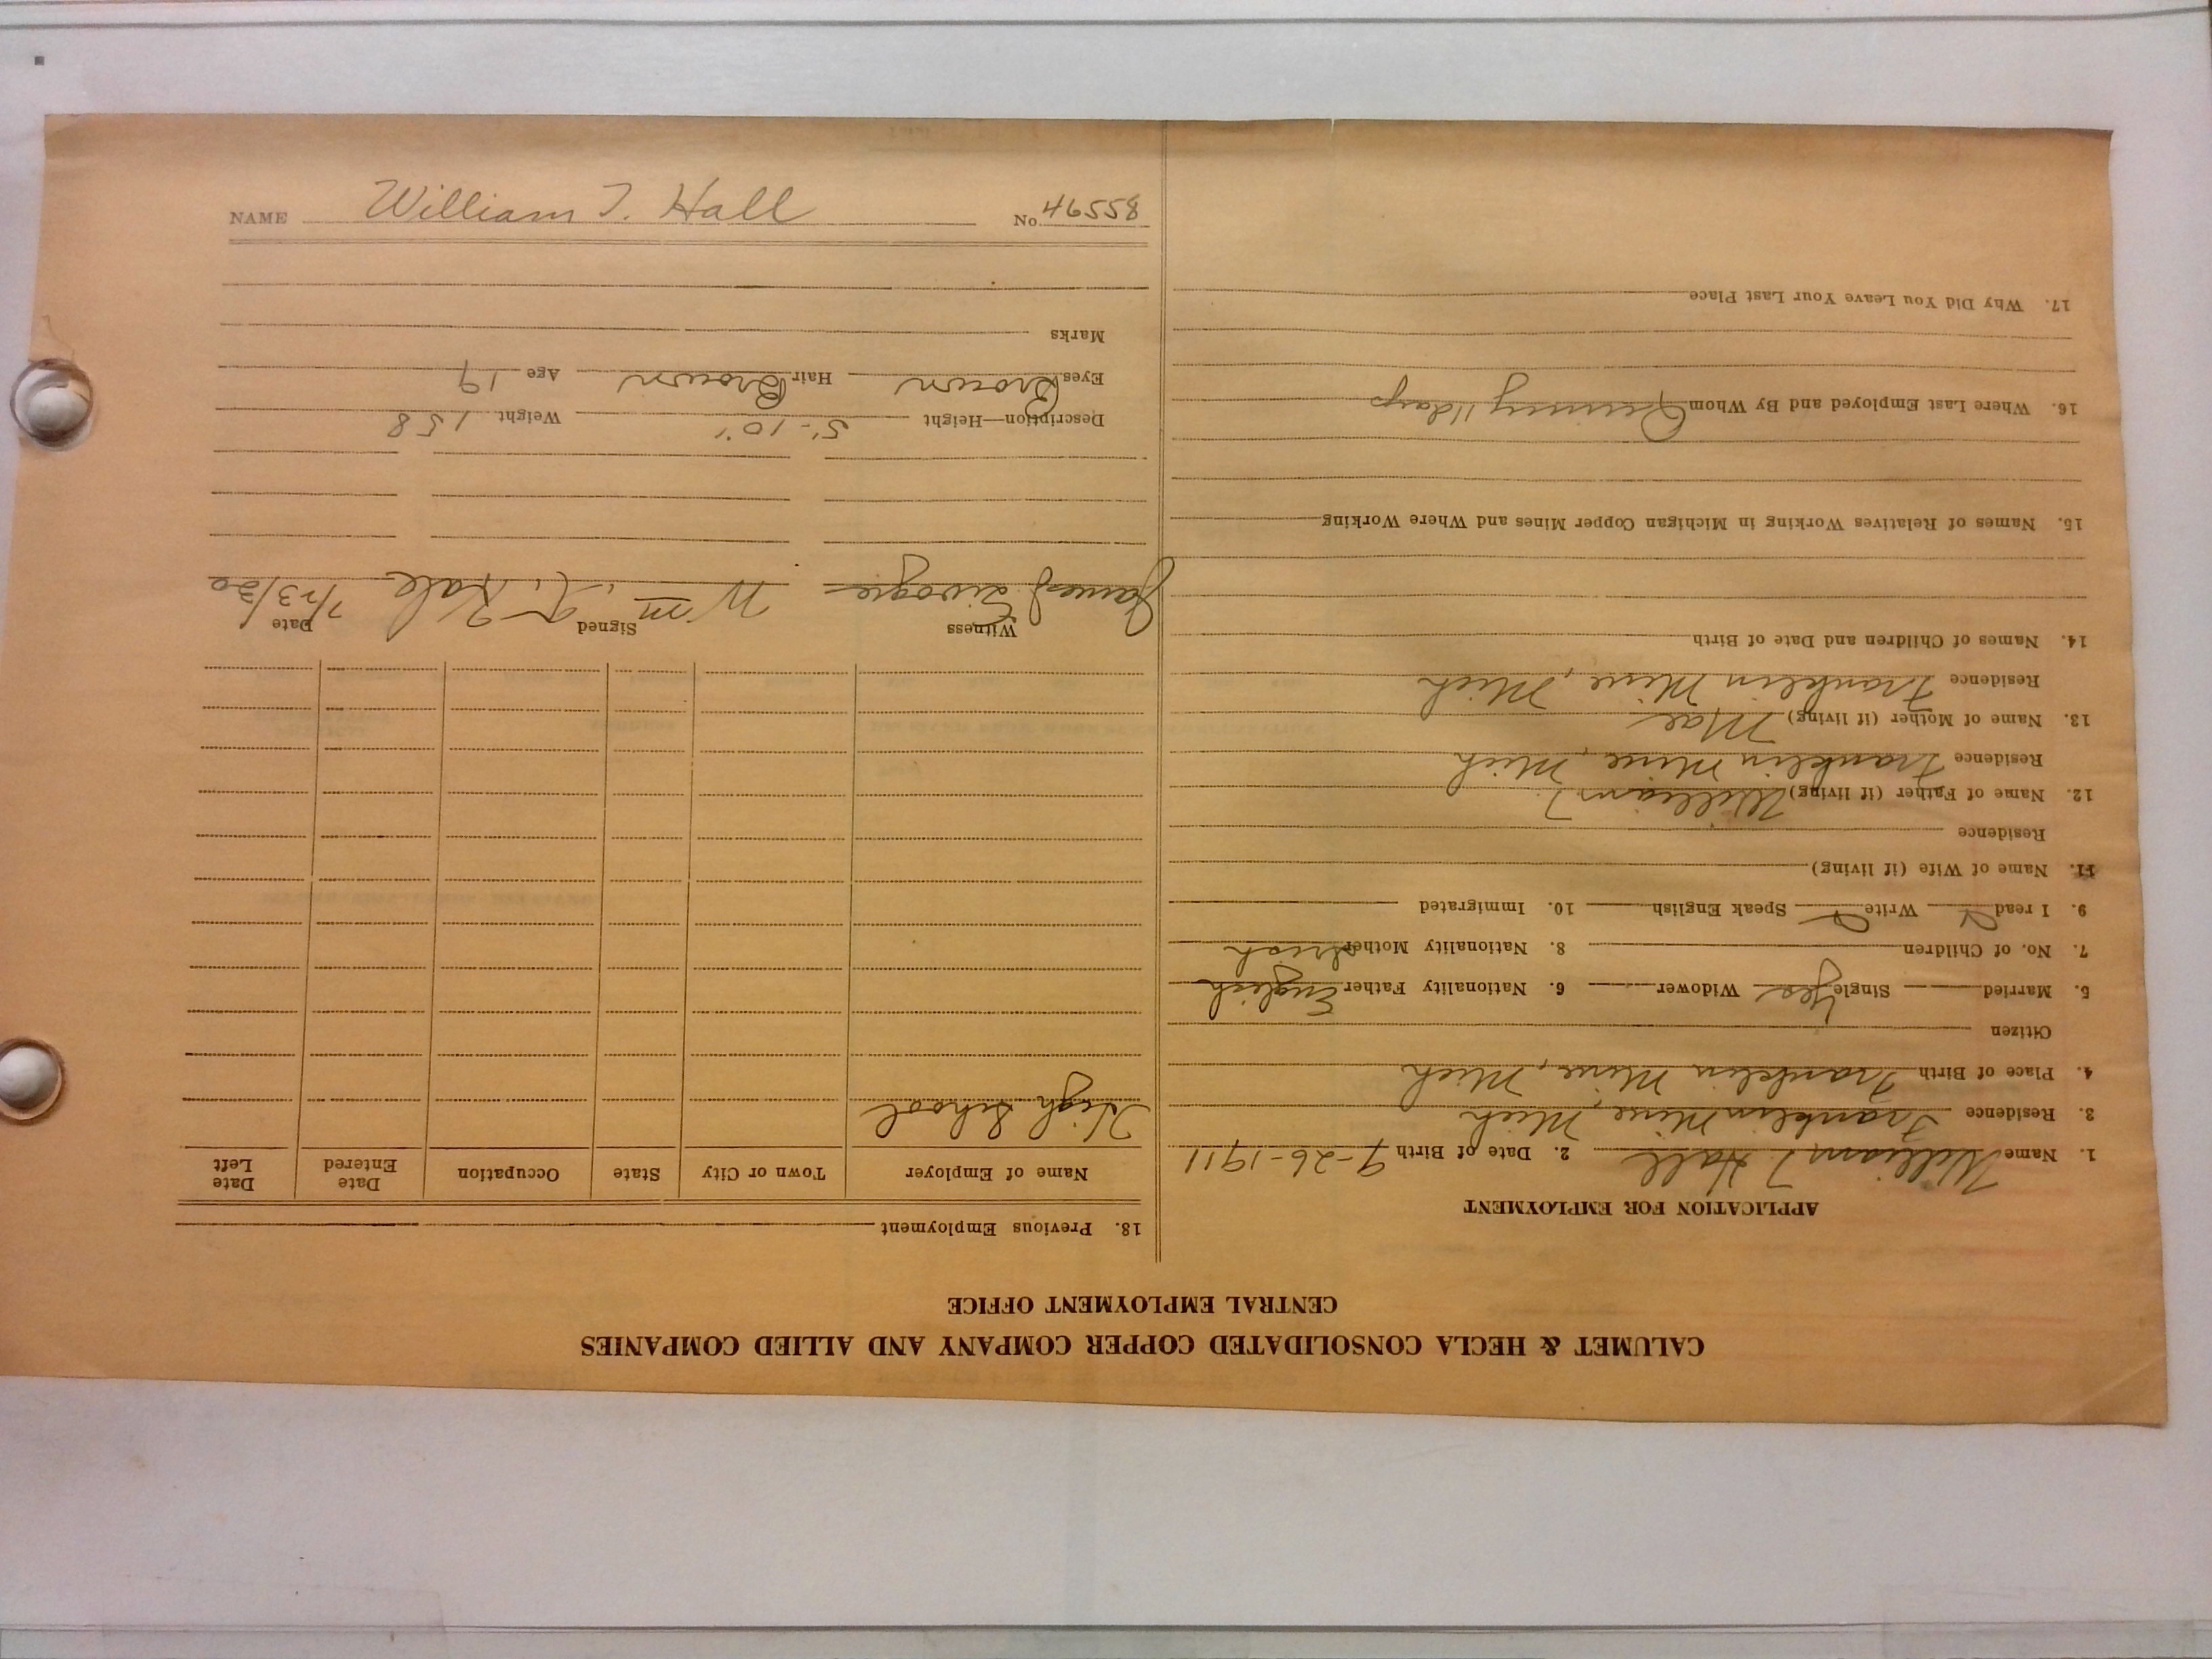 CALUMET & HECLA CONSOLIDATED COPPER COMPANY AND ALLIED COMPANIES
CENTRAL EMPLOYMENT OFFICE
APPLICATION FOR EMPLOYMENT
1. Name William T. Hall 2. Date of Birth 9-26-1911
3. Residence Franklin Mine, Mich
4. Place of Birth Franklin Mine, Mich
Citizen
5. Married Single Yes Widower 6. Nationality Father English
7. No. of Children 8. Nationality Mother Irish
9. I read Write Speak English 10. Immigrated
11. Name of Wife (if living)
Residence
12. Name of Father (if living) William T.
Residence Franklin Mine, Mich
13. Name of Mother (if living) Mae
Residence Franklin Mine, Mich
14. Names of Children and Date of Birth
15. Names of Relatives Working in Michigan Copper Mines and Where Working
16. Where Last Employed and By Whom Quincy 11 days
17. Why Did You Leave Your Last Place
18. Previous Employment
Name of Employer Town or City State Occupation Date Entered Date Left
High School
Witness Signed Date
James Wm. T. Hall 7/23/30
Description—Height 5'-10" Weight 158
Eyes Brown Hair Brown Age 19
Marks
NAME William T. Hall No. 46558